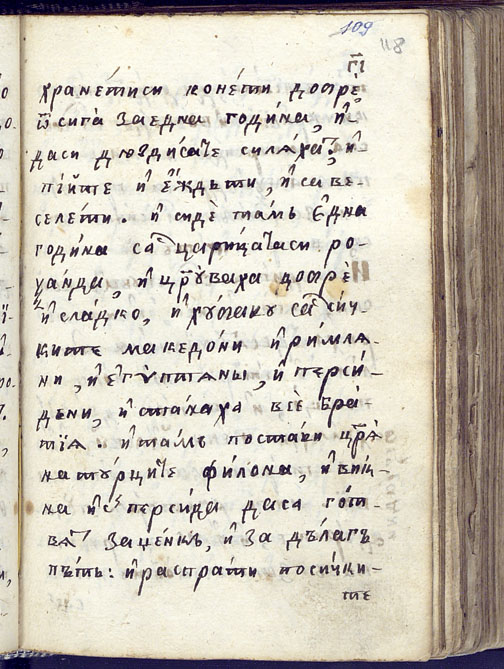 109
118
г҃і
хранѣтиси конѣти добрѐ,
ѿсига̀ заедна годи́на, и҆
даси дюздисаⷮе силяхаⷮ, и҆
пі́йте и҆ е҆́ждьти, и҆ саве-
селе́ти. и҆ сидѐ тамъ е҆дна
годи́на саⷭ цари́цатаси ро-
уа́нда, и҆ црⷭ҇ꙋваха добрѐ
и҆ сла́дко, и҆ хꙋбаву саⷭ си́ч-
ките македо́ни и҆ ри́мля-
ни, и҆ е҆гѵптяны, и҆ перси́-
дѣни, и҆ станаха всѐ бра́-
тїя. и҆ тамъ постави цр҃ѧ̀
натꙋрциⷮе филона, и҆ виⷦ-
на и҆ⷥ перси́да даса го́т-
вяⷮ замѐнкъ, и҆ за дъ́лагъ
пѫть: и҆ распрати посички-
те